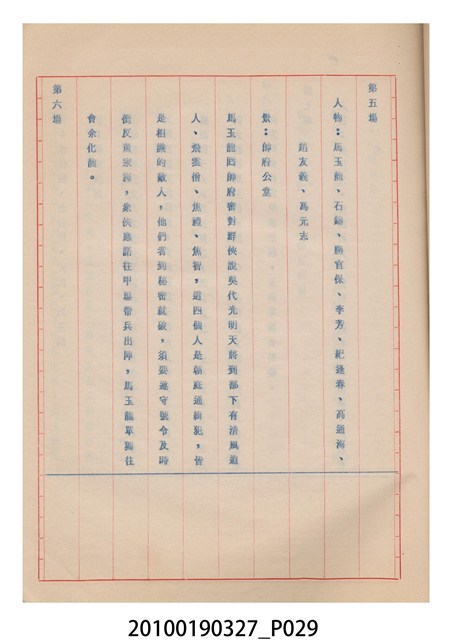 第五場
人物：馬玉龍、石鑄、勝官保、李芳、紀逢春、高通海、
趙友義、馬元志
景：帥府公堂
馬玉龍回帥府密對群俠說吳代光明天將到都下有清風道
人、飛雲僧、焦禮、焦智，這四個人是朝庭通緝犯，皆
是相識的敵人，他們看到秘密就破，須要遵守號令及時
衝反黃家莊，眾俠應諾往甲場帶兵出陣，馬玉龍單獨往
會余化龍。
第六場
20100190327_P029